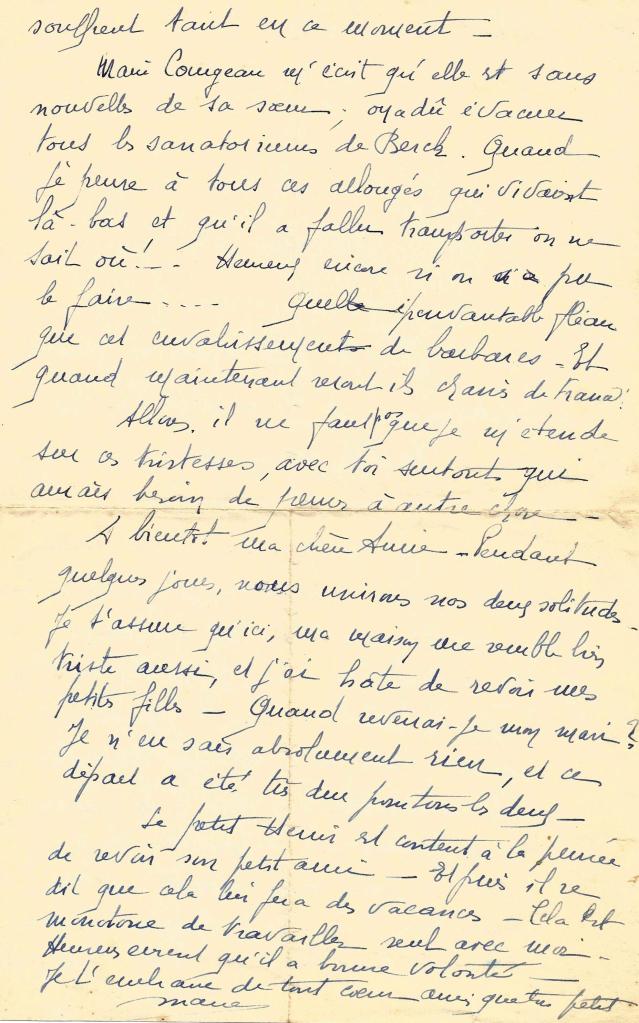 souffrent tant en ce moment –
Marie Courgeau m'écrit qu'elle est sans
nouvelles de sa sœur ; on a dû évacuer
tous les sanatoriums de Berck. Quand
je pense à tous ces allongés qui vivaient
là-bas et qu'il a fallu transporter on ne
sait où !.. Heureux encore si on a pu
le faire .... Quelle épouvantable fléau
que cet envahissement de barbares – Et
quand maintenant seront ils chassés de France !
Allons, il ne faut pas que je m'étende
sur ces tristesses, avec toi surtout qui
aurais besoin de penser à autre chose –
A bientôt ma chère Annie – Pendant
quelques jours, nous unirons nos deux solitudes –
Je t'assure qu'ici, ma maison me semble bien
triste aussi, et j'ai hâte de revoir mes
petites filles – Quand reverrai-je mon mari ?
Je n'en sais absolument rien, et ce
départ a été très dur pour tous les deux –
Le petit Henri est content à la pensée
de revoir son petit ami – Et puis il se
dit que cela lui fera des vacances – Cela est
monotone de travailler seul avec moi –
Heureusement qu'il a bonne volonté –
Je t'embrasse de tout cœur ainsi que tes petits
Marie